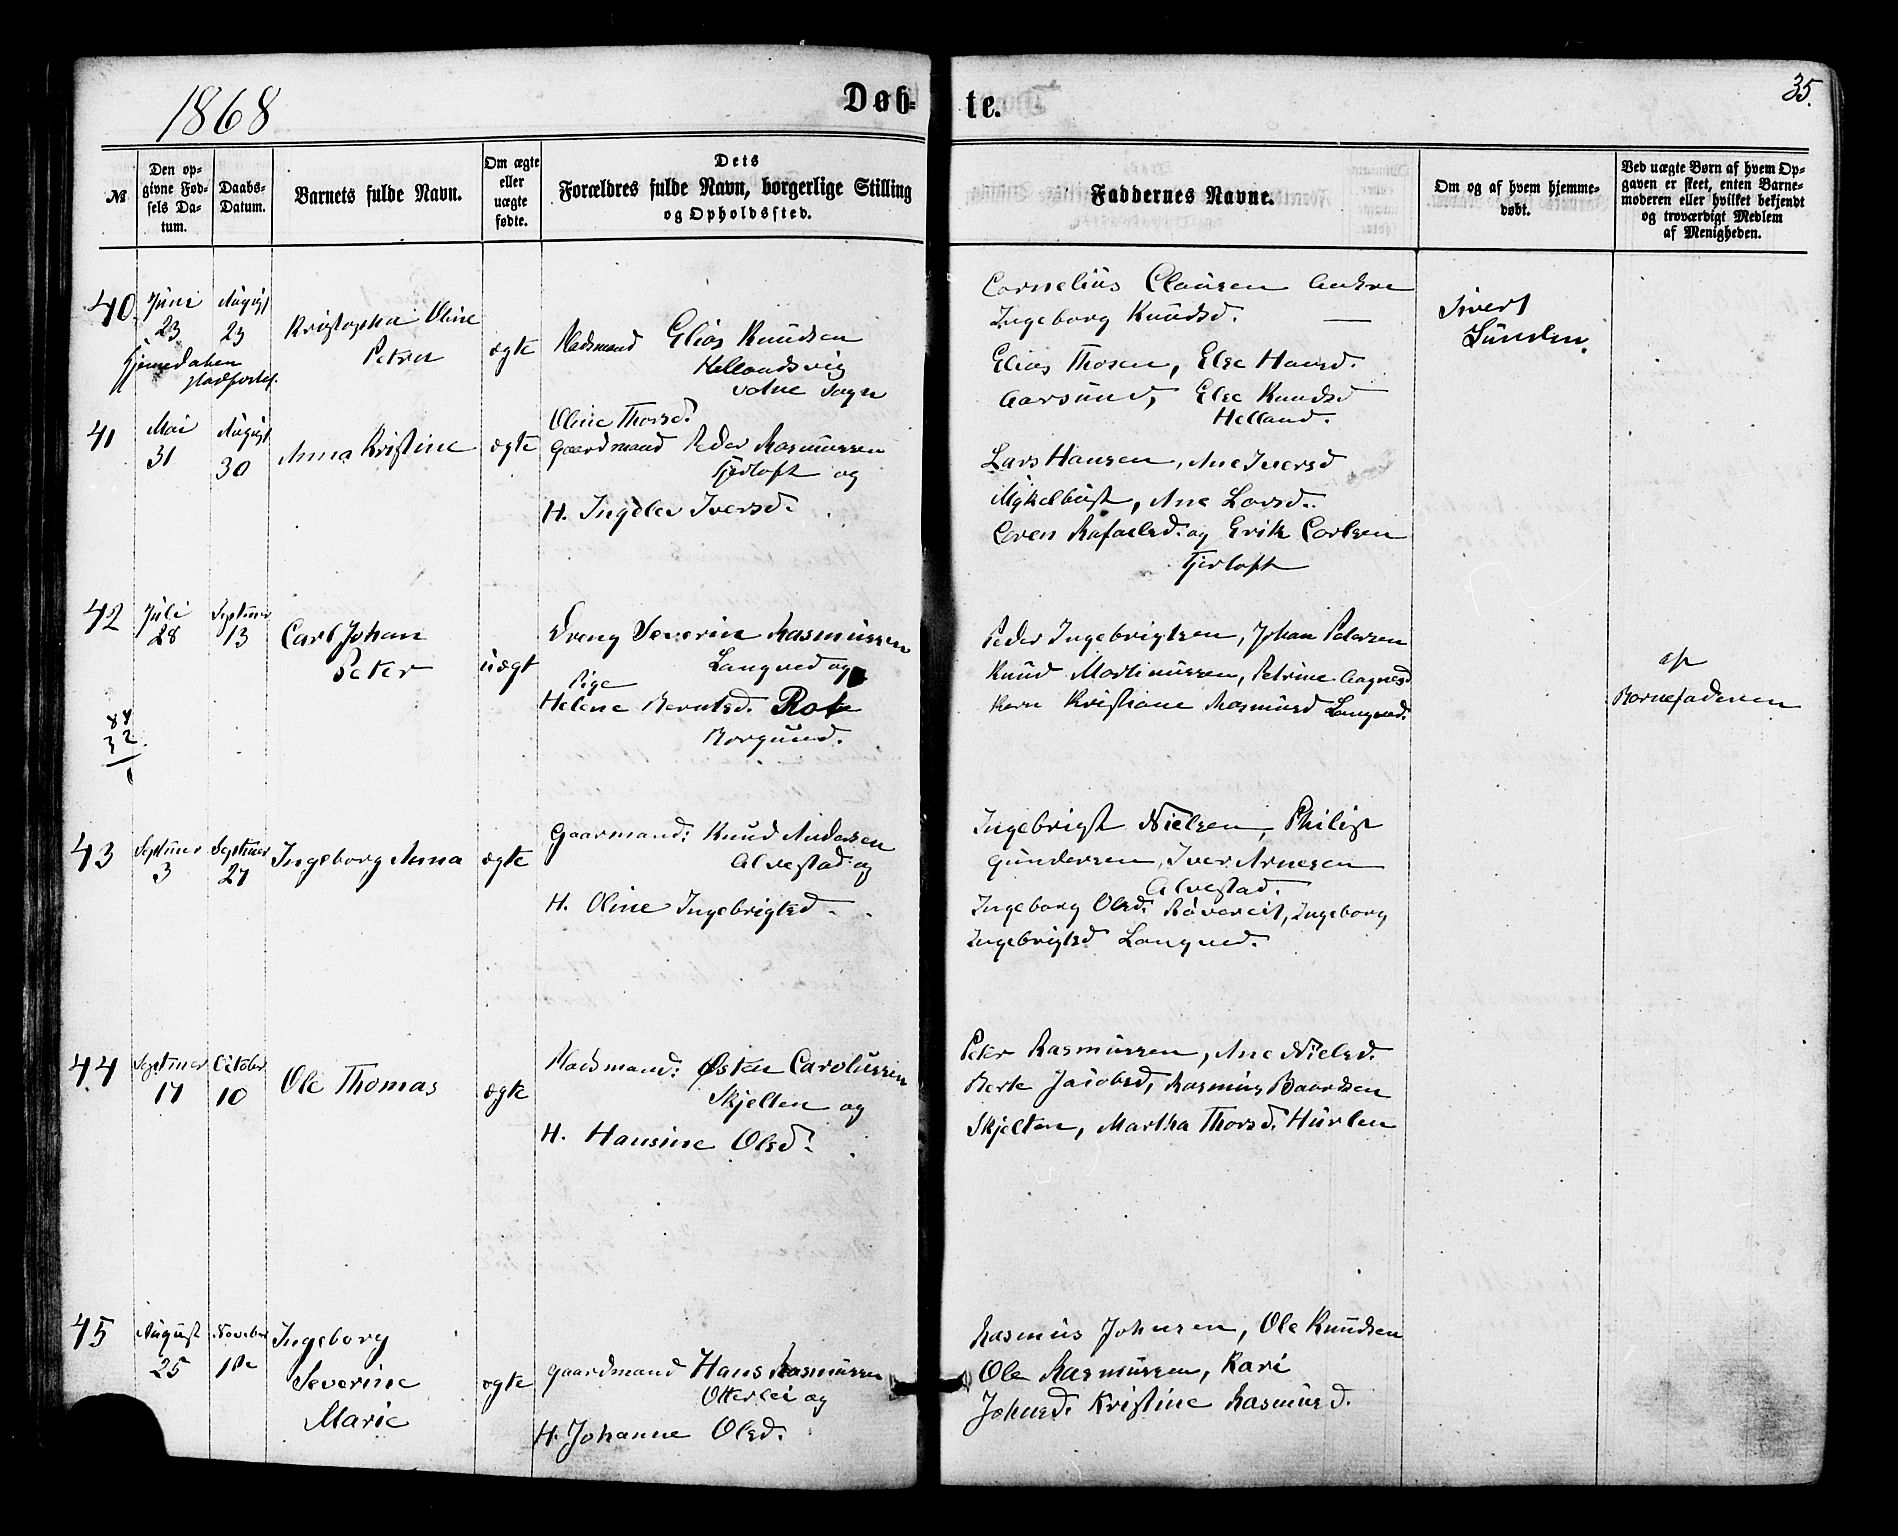 1868
Døb-
te.
35.
№
Den op-
givne Fød-
sels Da-
tum.
Daabs-
Datum.
Barnets fulde Navn.
Om ægte
eller
uægte
fødte.
Dets
Forældres fulde Navn, borgerlige Stilling
og Opholdssted.
Faddernes Navne.
Om og af hvem hjemme-
døbt.
Ved uægte Børn af hvem Op-
gaven er skeet, enten Barne-
moderen eller hvilket bekjendt
og troværdigt Medlem
af Menigheden.
40
Juni
23
August
23
Oline
Petra
ægte
Pladsmand Elias Knudsen
Hellandsvig
Sogn
Oline Thorsd.
Cornelius Clausen
Ingeborg Knudsd. —
Elias Thosen, Else Hansd.
Aarsund, Else Knudsd
Helland.
Sivert
Sunden.
41
Mai
31
August
30
Anna Kristine
ægte
Gaardmand Peder Rasmussen
Fjerloft og
H. Ingeles Iversd.
Lars Hansen, Ane Iversd
Myklebust, Ane Larsd.
Caren Rafaelsd. og Erik Carlsen
Fjerloft
42
Juli
28
13
Carl Johan
Peter
uægt
Dreng Severin Rasmussen
Langved og
Pige
Helene Berntsd.
Borgund.
Peder Ingebrigtsen, Johan Petersen
Knud Martinussen, Petrine Aagnesd
Kristiane Rasmusd Langved.
af
Barnefaderen
43
3
27
Ingeborg Anna
ægte
Gaarmand: Knud Andersen
Alvestad og
H. Oline Ingebrigtsd.
Ingebrigt Nielsen, Philip
Gundersen, Iver Arnesen
Alvestad.
Ingeborg Olsd. Ingeborg
Ingebrigtsd Langved.
44
17
October
10
Ole Thomas
ægte
Pladsmand: Østen Carolussen
Skjelten og
H. Hansine Olsd.
Peter Rasmussen, Ane Nielsd.
Berte Jacobsd, Rasmus Baardsen
Skjelten, Martha Thorsd. Hurlen
45
August
25
1ste
Ingeborg
Severine
Marie
ægte
Gaardmand Hans Rasmussen
Otterlei og
H. Johanne Olsd.
Rasmus Johnsen, Ole Knudsen
Ole Rasmussen, Kari
Johnsd. Kristine Rasmusd.